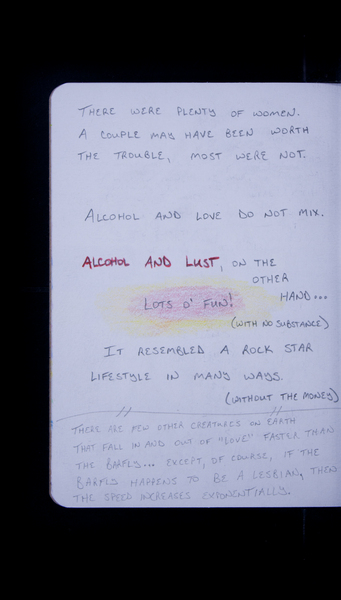 THERE WERE PLENTY OF WOMEN.
A COUPLE MAY HAVE BEEN WORTH
THE TROUBLE, MOST WERE NOT.
ALCOHOL AND LOVE DO NOT MIX.
ALCOHOL AND LUST, ON THE
OTHER
HAND...
LOTS O' FUN!
(WITH NO SUBSTANCE)
IT RESEMBLED A ROCK STAR
LIFESTYLE IN MANY WAYS.
(WITHOUT THE MONEY)
THERE ARE FEW OTHER CREATURES ON EARTH
THAT FALL IN AND OUT OF "LOVE" FASTER THAN
THE BARFLY... EXCEPT, OF COURSE, IF THE
BARFLY HAPPENS TO BE A LESBIAN, THEN
THE SPEED INCREASES EXPONENTIALLY.